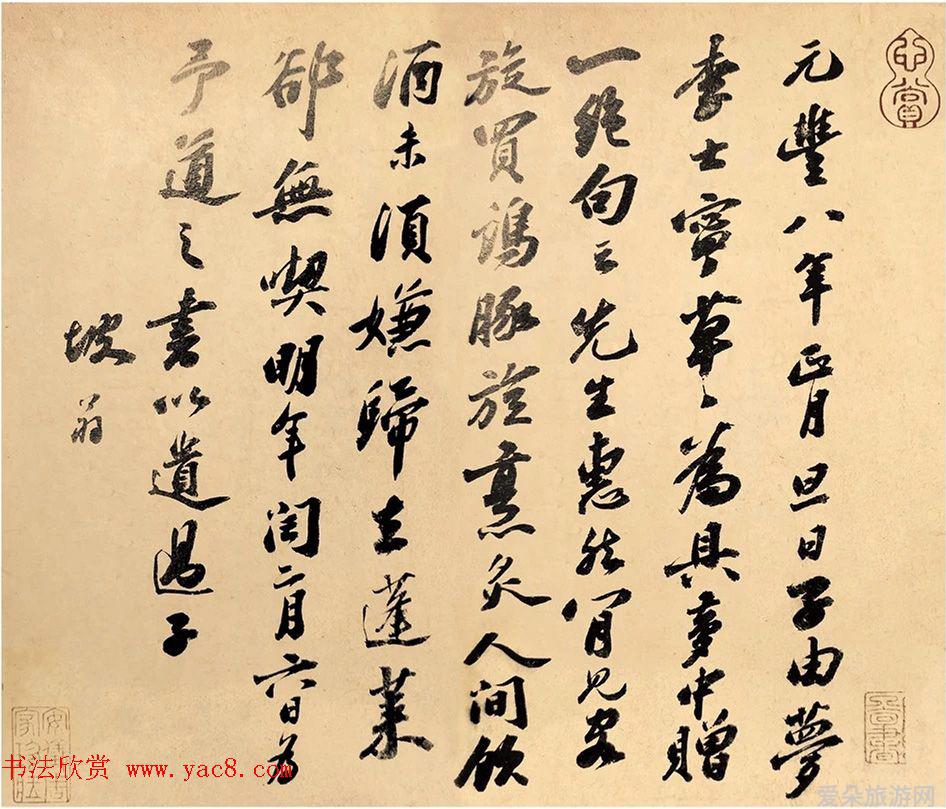 元豐八年正月旦日子由夢
李士寧草〻為具夢中贈
一絕句云先生惠然肯見客
旋買鷄豚旋烹炙人間飲
酒未須嫌歸去蓬萊
卻無喫明年閏二月六日為
予道之書以遺過子
坡翁
安儀周家珍藏
书法欣赏 www.yac8.com
爱朵旅游网